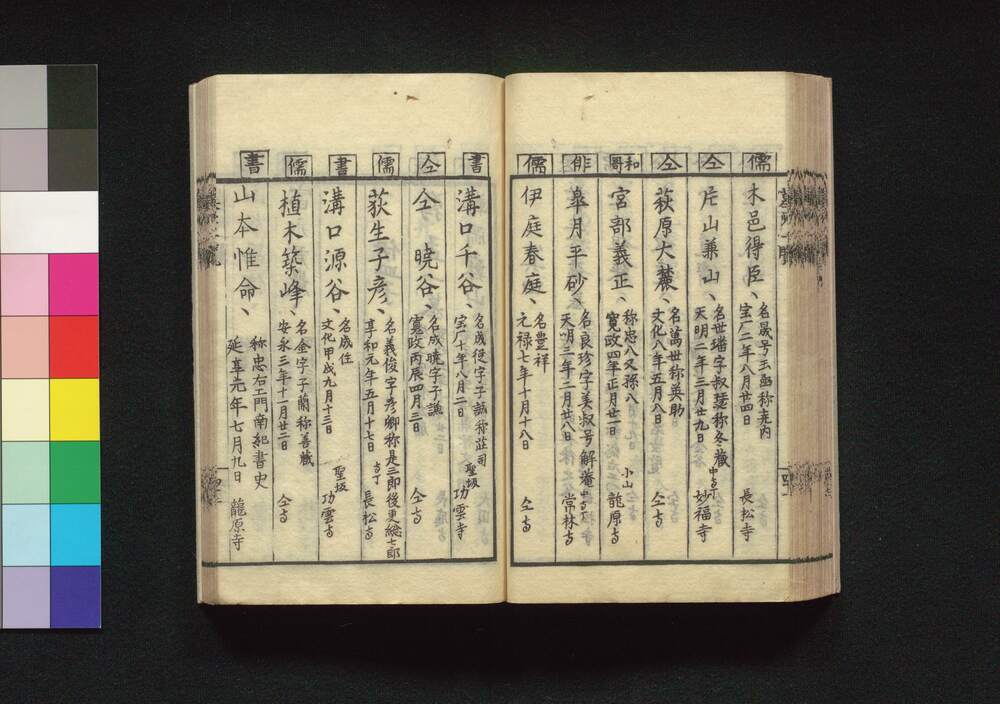 儒
木邑得臣、
名晟号玉 称尭内
宝厂二年八月廿四日
長松寺
仝
片山兼山、
名世璠字叔瑟称冬蔵
天明二年三月廿九日
中寺丁
妙福寺
仝
萩原大麓、
名萬世称英助
文化八年五月八日
仝寺
和哥
宮部義正、
称忠八又孫八
寛政四年正月廿一日
小山
龍原寺
俳
皐月平砂、
名良珍字美淑号解庵
天明三年二月廿八日
中寺丁
常林寺
儒
伊庭春庭、
名豊祥
元禄七年十月十八日
仝寺
書
溝口千谷、
名成徒字子誠称荘司
宝厂十年八月二日
聖坂
功雲寺
仝
仝 暁谷、
名成暁字子謙
寛政丙辰四月三日
仝寺
儒
荻生子彦、
名義俊字彦卿称是三郎後更総七郎
享和元年五月十七日
寺丁
長松寺
書
溝口源谷、
名成住
文化甲戌九月十三日
聖坂
功雲寺
儒
植木築峰、
名金字子蘭称善蔵
安永三年十一月廿二日
仝寺
書
山本惟命、
称忠右エ門南紀書史
延享元年七月九日
龍原寺